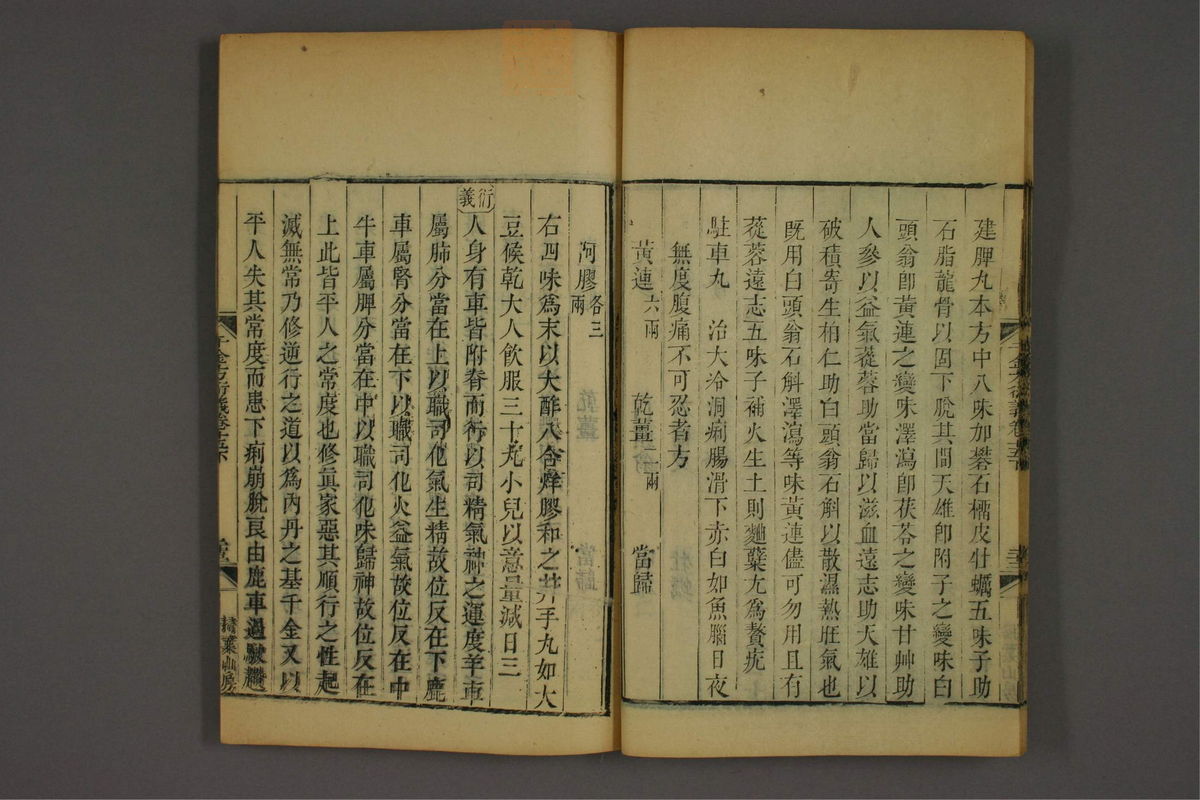 建脾丸本方中八味加礬石橘皮牡蠣五味子助
石脂龍骨以固下脫其間天雄卽附子之變味白
頭翁卽黃連之變味澤瀉卽茯苓之變味甘艸助
人參以益氣蓯蓉助當歸以滋血遠志助天雄以
破積寄生柏仁助白頭翁石斛以散濕熱旺氣也
旣用白頭翁石斛澤瀉等味黃連儘可勿用且有
蓯蓉遠志五味子補火生土則麯糵尤爲贅疣
駐車丸 治大冷洞痢腸滑下赤白如魚腦日夜
無度腹痛不可忍者方
黃連六兩 乾薑二兩 當歸
阿膠各三兩
右四味爲末以大酢八合烊膠和之并手丸如大
豆候乾大人飲服三十丸小兒以意量減日三
衍義
人身有車皆附脊而行以司精氣神之運度羊車
屬肺分當在上以職司化氣生精故位反在下鹿
車屬腎分當在下以職司化火益氣故位反在中
牛車屬脾分當在中以職司化味歸神故位反在
上此皆平人之常度也修眞家惡其順行之性起
滅無常乃修逆行之道以爲內丹之基千金又以
平人失其常度而患下痢崩脫良由鹿車過駛趲
千金方衍義卷十五下
掃葉山房